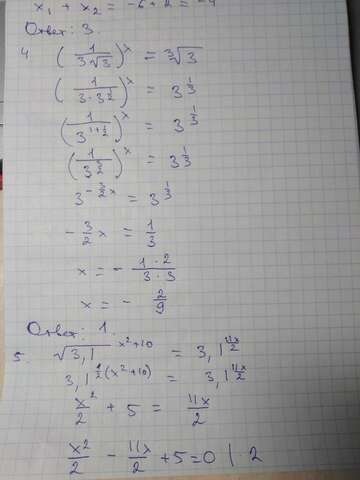 x₁ + x₂ = -6 + 2 = -4
Ответ: 3.
4 (1/(3·√3))^x = ∛3
(1/(3·3^(1/2)))^x = 3^(1/3)
(1/3^(1+1/2))^x = 3^(1/3)
(1/3^(3/2))^x = 3^(1/3)
3^(-3/2 x) = 3^(1/3)
-3/2 x = 1/3
x = - (1·2)/(3·3)
x = - 2/9
Ответ: 1.
5. √3,1^(x²+10) = 3,1^(11x/2)
3,1^(1/2(x²+10)) = 3,1^(11x/2)
x²/2 + 5 = 11x/2
x²/2 - 11x/2 + 5 = 0 | · 2